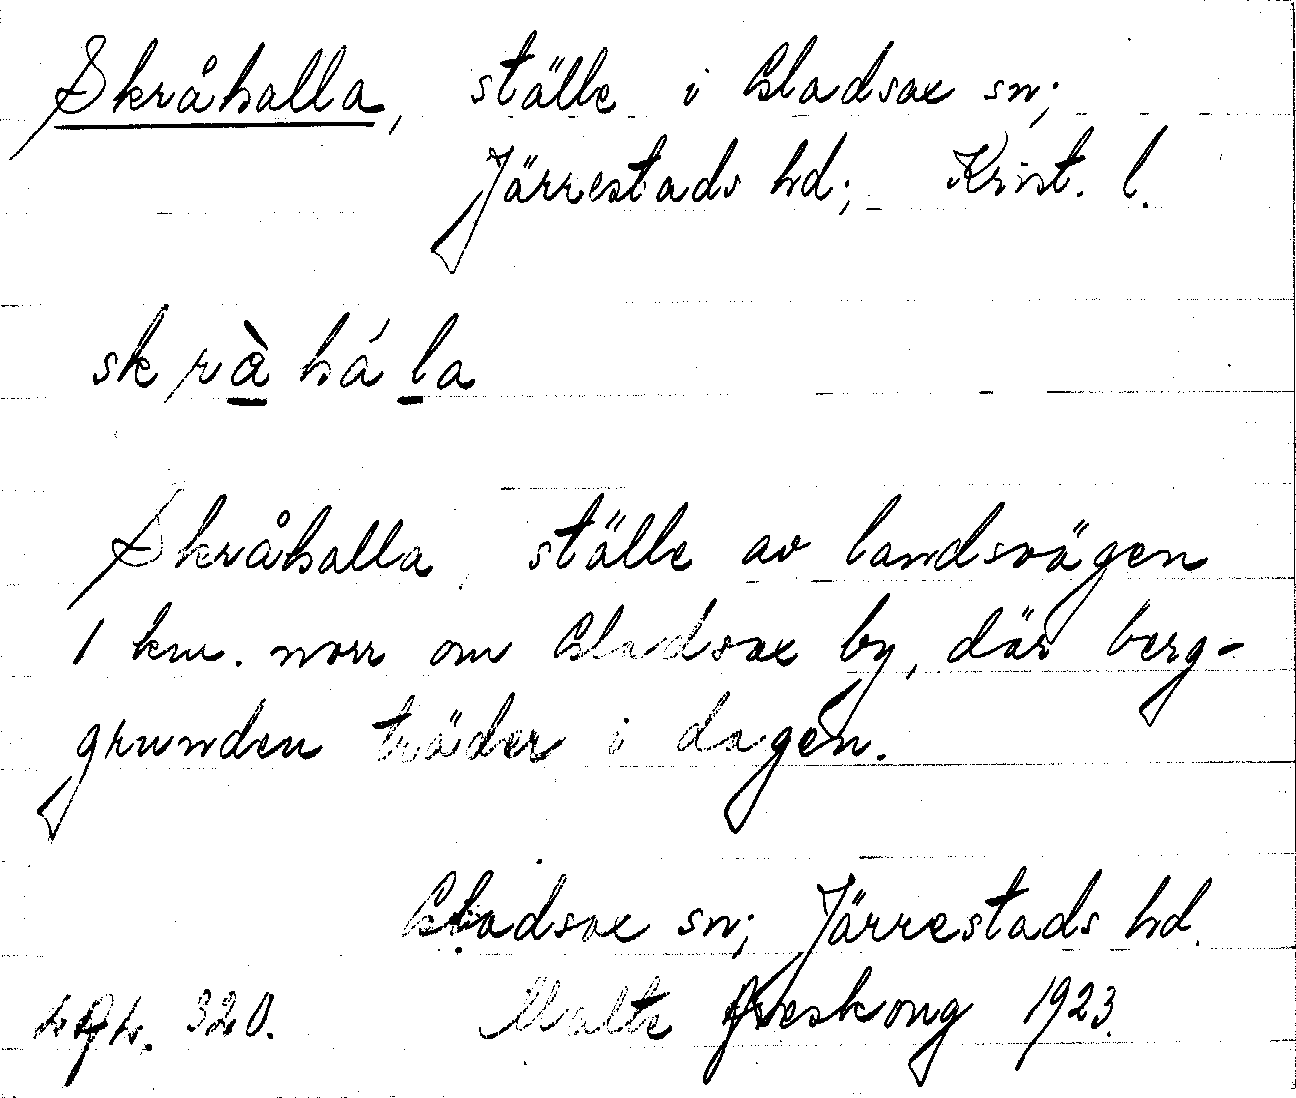 Skråhalla, ställe i Gladsax sn;
Järrestads hd; Krist. l.
skrà há la
Skråhalla, ställe av landsvägen
1 km. norr om Gladsax by, där berg-
grunden träder i dagen.
Gladsax sn; Järrestads hd.
320. Malte Areskoug 1923.